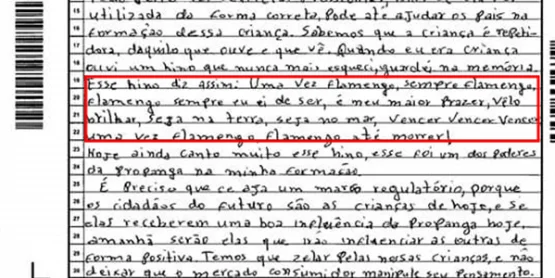 15 utilizada da forma correta, Pode até ajudar os Pais na
16 Formação dessa criança. Sabemos que a criança é repeti-
17 dora, daquilo que ouve e que vê. Quando eu era criança
18 ouvi um hino que nunca mais esqueci, guardei na memória.
19 Esse hino diz assim: Uma Vez Flamengo, sempre Flamengo,
20 Flamengo sempre eu ei de ser, é meu maior Prazer, Vê-lo
21 brilhar, Seja na terra, seja no mar, Vencer Vencer Vencer
22 uma vez Flamengo Flamengo até morrer!
23 Hoje ainda canto muito esse hino, esse foi um dos Poderes
24 da Propanga na minha Formação.
25 É Preciso que ce aja um marco regulatório, porque
26 os cidadãos do Futuro são as crianças de hoje, e se
27 elas receberem uma boa influência da Propanga hoje,
28 amanhã serão elas que irão influenciar as outras de
29 forma positiva. Temos que zelar Pelas nossas Crianças, e não
30 deixar que o mercado consumidor manipule seu Pensamento.